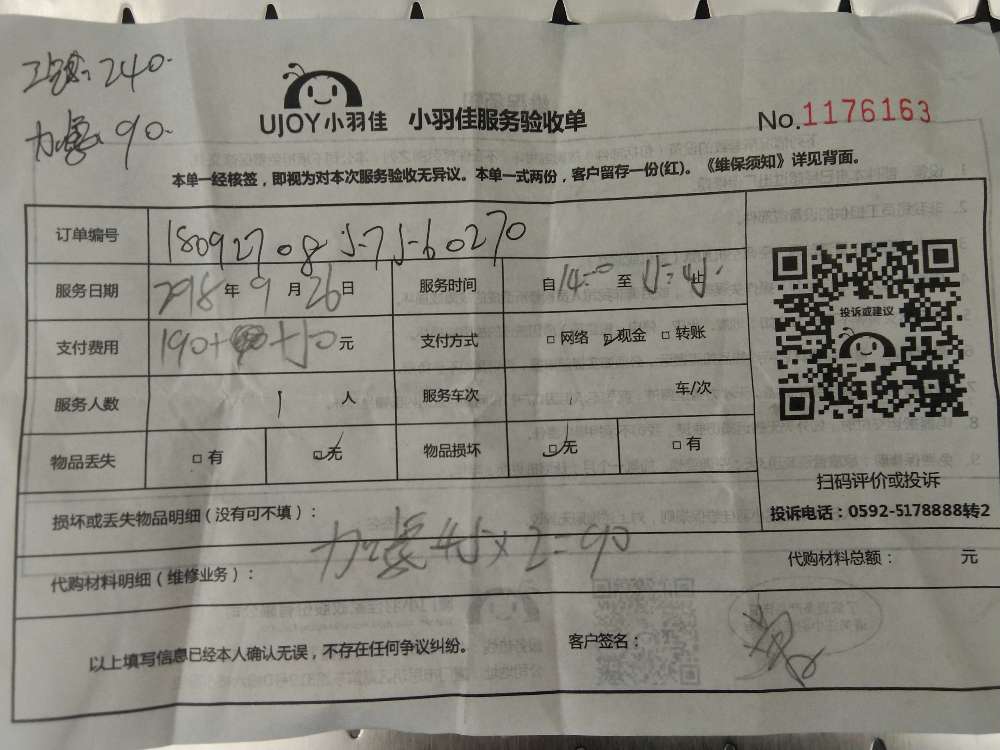 240.
90.
UJOY小羽佳 小羽佳服务验收单 No.1176163
本单一经核签，即视为对本次服务验收无异议。本单一式两份，客户留存一份(红)。《维保须知》详见背面。
订单编号
服务日期 2018年9月26日 服务时间 自14:00至
支付费用 190+ 元 支付方式 □网络 □现金 □转账
服务人数 1人 服务车次 车/次
物品丢失 □有 □无 物品损坏 □无 □有
投诉或建议
扫码评价或投诉
投诉电话：0592-5178888转2
损坏或丢失物品明细（没有可不填）：
45×2=90
代购材料明细（维修业务）： 代购材料总额： 元
以上填写信息已经本人确认无误，不存在任何争议纠纷。 客户签名：